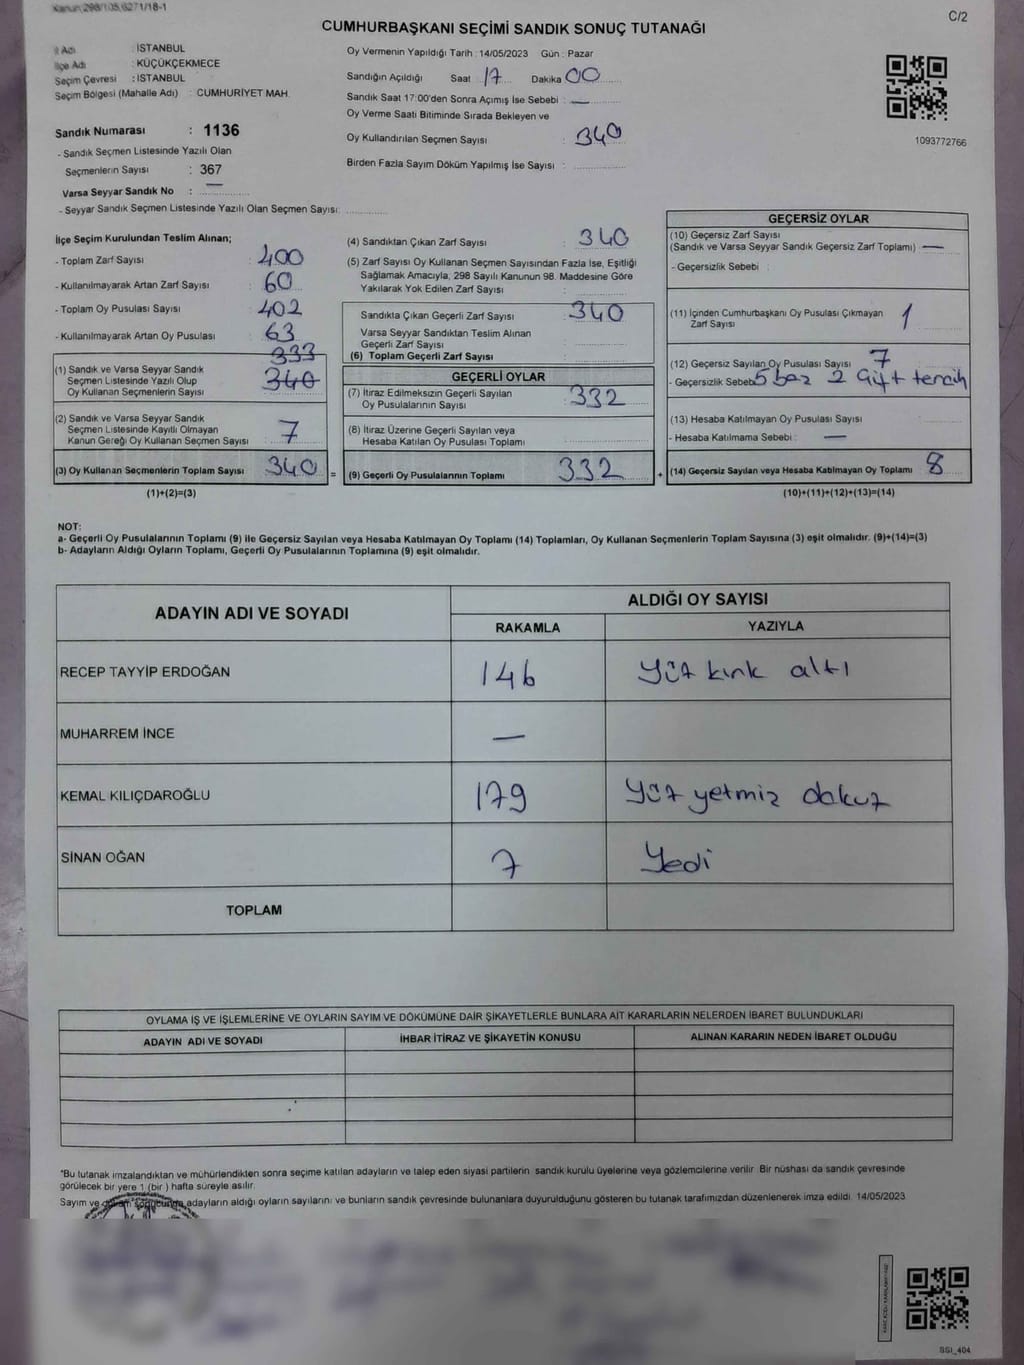 Kanun:298/105,6271/18-1
C/2
CUMHURBAŞKANI SEÇİMİ SANDIK SONUÇ TUTANAĞI
İl Adı : İSTANBUL
İlçe Adı : KÜÇÜKÇEKMECE
Seçim Çevresi : İSTANBUL
Seçim Bölgesi (Mahalle Adı) : CUMHURİYET MAH.
Sandık Numarası : 1136
- Sandık Seçmen Listesinde Yazılı Olan
Seçmenlerin Sayısı : 367
Varsa Seyyar Sandık No : —
- Seyyar Sandık Seçmen Listesinde Yazılı Olan Seçmen Sayısı:
Oy Vermenin Yapıldığı Tarih : 14/05/2023 Gün : Pazar
Sandığın Açıldığı Saat 17 Dakika 00
Sandık Saat 17:00'den Sonra Açımış İse Sebebi : —
Oy Verme Saati Bitiminde Sırada Bekleyen ve
Oy Kullandırılan Seçmen Sayısı : 340
Birden Fazla Sayım Döküm Yapılmış İse Sayısı :
1093772766
İlçe Seçim Kurulundan Teslim Alınan;
- Toplam Zarf Sayısı : 400
- Kullanılmayarak Artan Zarf Sayısı : 60
- Toplam Oy Pusulası Sayısı : 402
- Kullanılmayarak Artan Oy Pusulası : 63
333
(1) Sandık ve Varsa Seyyar Sandık
Seçmen Listesinde Yazılı Olup
Oy Kullanan Seçmenlerin Sayısı 340
(2) Sandık ve Varsa Seyyar Sandık
Seçmen Listesinde Kayıtlı Olmayan
Kanun Gereği Oy Kullanan Seçmen Sayısı 7
(3) Oy Kullanan Seçmenlerin Toplam Sayısı 340 =
(1)+(2)=(3)
(4) Sandıktan Çıkan Zarf Sayısı : 340
(5) Zarf Sayısı Oy Kullanan Seçmen Sayısından Fazla İse, Eşitliği
Sağlamak Amacıyla, 298 Sayılı Kanunun 98. Maddesine Göre
Yakılarak Yok Edilen Zarf Sayısı :
Sandıkta Çıkan Geçerli Zarf Sayısı : 340
Varsa Seyyar Sandıktan Teslim Alınan
Geçerli Zarf Sayısı :
(6) Toplam Geçerli Zarf Sayısı :
GEÇERLİ OYLAR
(7) İtiraz Edilmeksizin Geçerli Sayılan
Oy Pusulalarının Sayısı : 332
(8) İtiraz Üzerine Geçerli Sayılan veya
Hesaba Katılan Oy Pusulası Toplamı :
(9) Geçerli Oy Pusulalarının Toplamı 332 +
GEÇERSİZ OYLAR
(10) Geçersiz Zarf Sayısı
(Sandık ve Varsa Seyyar Sandık Geçersiz Zarf Toplamı) : —
- Geçersizlik Sebebi :
(11) İçinden Cumhurbaşkanı Oy Pusulası Çıkmayan
Zarf Sayısı 1
(12) Geçersiz Sayılan Oy Pusulası Sayısı : 7
- Geçersizlik Sebebi 5 boz 2 çift tercih
(13) Hesaba Katılmayan Oy Pusulası Sayısı :
- Hesaba Katılmama Sebebi : —
(14) Geçersiz Sayılan veya Hesaba Katılmayan Oy Toplamı : 8
(10)+(11)+(12)+(13)=(14)
NOT:
a- Geçerli Oy Pusulalarının Toplamı (9) ile Geçersiz Sayılan veya Hesaba Katılmayan Oy Toplamı (14) Toplamları, Oy Kullanan Seçmenlerin Toplam Sayısına (3) eşit olmalıdır. (9)+(14)=(3)
b- Adayların Aldığı Oyların Toplamı, Geçerli Oy Pusulalarının Toplamına (9) eşit olmalıdır.
ADAYIN ADI VE SOYADI
ALDIĞI OY SAYISI
RAKAMLA YAZIYLA
RECEP TAYYİP ERDOĞAN 146 Yüz kırk altı
MUHARREM İNCE —
KEMAL KILIÇDAROĞLU 179 Yüz yetmiz dokuz
SİNAN OĞAN 7 Yedi
TOPLAM
OYLAMA İŞ VE İŞLEMLERİNE VE OYLARIN SAYIM VE DÖKÜMÜNE DAİR ŞİKAYETLERLE BUNLARA AİT KARARLARIN NELERDEN İBARET BULUNDUKLARI
ADAYIN ADI VE SOYADI İHBAR İTİRAZ VE ŞİKAYETİN KONUSU ALINAN KARARIN NEDEN İBARET OLDUĞU
*Bu tutanak imzalandıktan ve mühürlendikten sonra seçime katılan adayların ve talep eden siyasi partilerin sandık kurulu üyelerine veya gözlemcilerine verilir. Bir nüshası da sandık çevresinde
görülecek bir yere 1 (bir) hafta süreyle asılır.
Sayım ve döküm sonucunda adayların aldığı oyların sayılarını ve bunların sandık çevresinde bulunanlara duyurulduğunu gösteren bu tutanak tarafımızdan düzenlenerek imza edildi. 14/05/2023
SSI_404